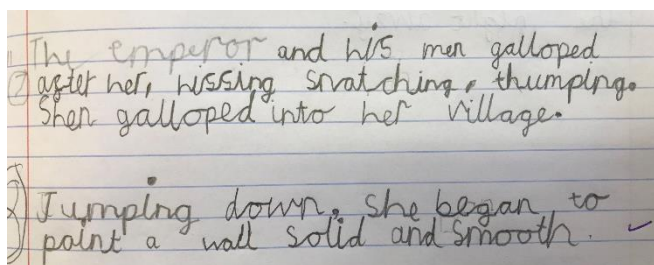 The emperor and his men galloped
2 after her, hissing snatching, thumping.
Shen galloped into her village.
Jumping down, she began to
paint a wall solid and smooth.